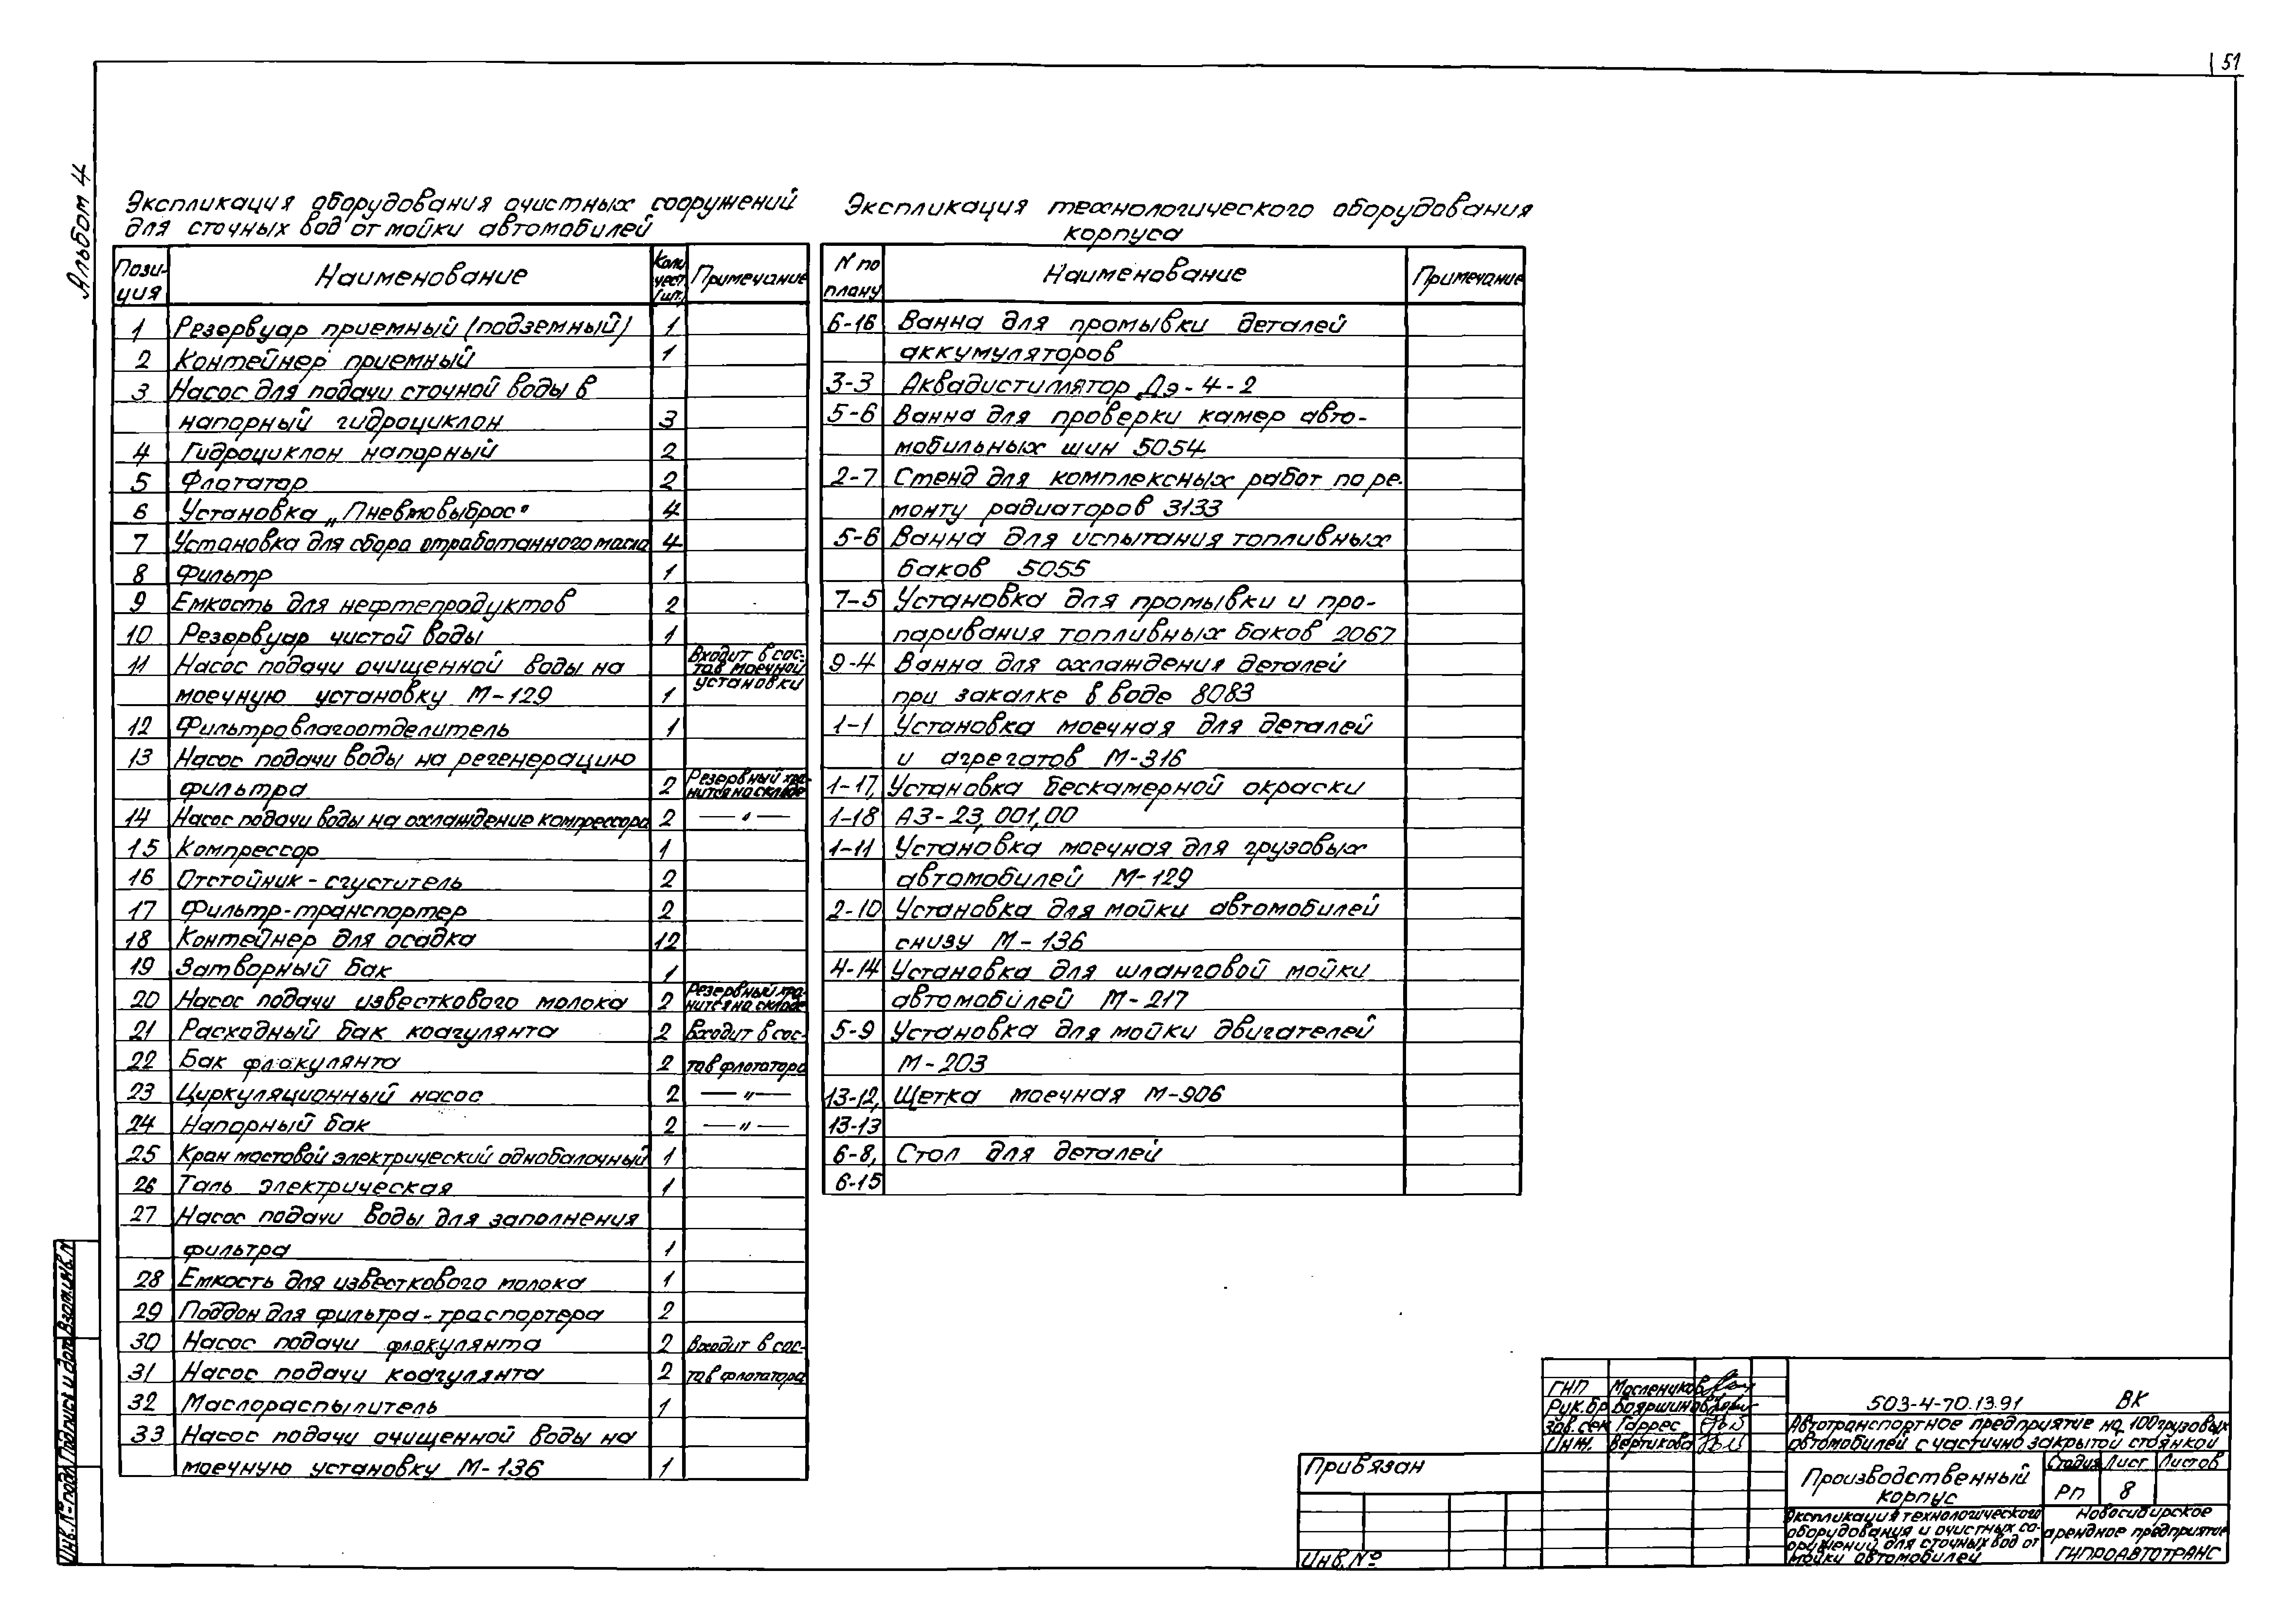 51
Альбом 4
Экспликация оборудования очистных сооружений
для сточных вод от мойки автомобилей
Пози-ция Наименование Коли-чест. (шт.) Примечание
1 Резервуар приемный (подземный) 1
2 Контейнер приемный 1
3 Насос для подачи сточной воды в
напорный гидроциклон 3
4 Гидроциклон напорный 2
5 Флотатор 2
6 Установка „Пневмовыброс" 4
7 Установка для сбора отработанного масла 4
8 Фильтр 1
9 Емкость для нефтепродуктов 2
10 Резервуар чистой воды 1
11 Насос подачи очищенной воды на Входит в сос-
тав моечной
установки
моечную установку М-129 1
12 Фильтровлагоотделитель 1
13 Насос подачи воды на регенерацию
фильтра 2 Резервный хра-
нится на складе
14 Насос подачи воды на охлаждение компрессора 2 — " —
15 Компрессор 1
16 Отстойник-сгуститель 2
17 Фильтр-транспортер 2
18 Контейнер для осадка 12
19 Затворный бак 1
20 Насос подачи известкового молока 2 Резервный хра-
нится на складе
21 Расходный бак коагулянта 2 Входит в сос-
22 Бак флокулянта 2 тав флотатора
23 Циркуляционный насос 2 — " —
24 Напорный бак 2 — " —
25 Кран мостовой электрический однобалочный 1
26 Таль электрическая 1
27 Насос подачи воды для заполнения
фильтра 1
28 Емкость для известкового молока 1
29 Поддон для фильтра-траспортера 2
30 Насос подачи флокулянта 2 Входит в сос-
31 Насос подачи коагулянта 2 тав флотатора
32 Маслораспылитель 1
33 Насос подачи очищенной воды на
моечную установку М-136 1
Экспликация технологического оборудования
корпуса
N по плану Наименование Примечание
6-16 Ванна для промывки деталей
аккумуляторов
3-3 Аквадистиллятор Дэ-4-2
5-6 Ванна для проверки камер авто-
мобильных шин 5054
2-7 Стенд для комплексных работ по ре-
монту радиаторов 3133
5-6 Ванна для испытания топливных
баков 5055
7-5 Установка для промывки и про-
паривания топливных баков 2067
9-4 Ванна для охлаждения деталей
при закалке в воде 8083
1-1 Установка моечная для деталей
и агрегатов М-316
1-17, Установка бескамерной окраски
1-18 АЗ-23,001,00
1-11 Установка моечная для грузовых
автомобилей М-129
2-10 Установка для мойки автомобилей
снизу М-136
4-14 Установка для шланговой мойки
автомобилей М-217
5-9 Установка для мойки двигателей
М-203
13-12, Щетка моечная М-906
13-13
6-8, Стол для деталей
6-15
Инв. № подл. Подпись и дата Взам.инв.N
Привязан
Инв.№
ГИП Маслеников
Рук.бр Бояршинов
Зав.сек Гаррес
Инж. Вертикова
503-4-70.13.91 ВК
Автотранспортное предприятие на 100 грузовых
автомобилей с частично закрытой стоянкой
Производственный
корпус
Стадия Лист Листов
РП 8
Экспликация технологического
оборудования и очистных со-
оружений для сточных вод от
мойки автомобилей
Новосибирское
арендное предприятие
ГИПРОАВТОТРАНС